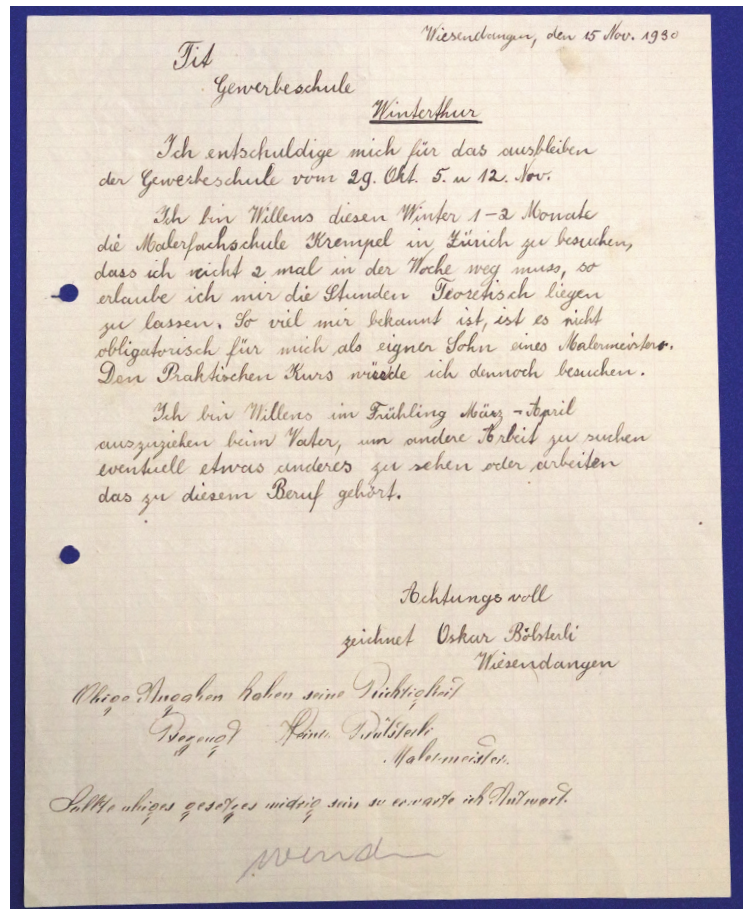 Wiesendangen, den 15 Nov. 1930
Tit
Gewerbeschule
Winterthur
Ich entschuldige mich für das ausbleiben
der Gewerbeschule vom 29. Okt. 5. u 12. Nov.
Ich bin Willens diesen Winter 1-2 Monate
die Malerfachschule Krempel in Zürich zu besuchen,
dass ich nicht 2 mal in der Woche weg muss, so
erlaube ich mir die Stunden Teoretisch liegen
zu lassen. So viel mir bekannt ist, ist es nicht
obligatorisch für mich als eigner Sohn eines Malermeisters.
Den Praktischen Kurs würde ich dennoch besuchen.
Ich bin Willens im Frühling März - April
auszuziehen beim Vater, um andere Arbeit zu suchen
eventuell etwas anderes zu sehen oder arbeiten
das zu diesem Beruf gehört.
Achtungsvoll
zeichnet Oskar Bölsterli
Wiesendangen
Obige Angaben haben seine Richtigkeit
Bezeugt Bölsterli
Malermeister.
Sollte obiges gesetzes widrig sein so erwarte ich Antwort.